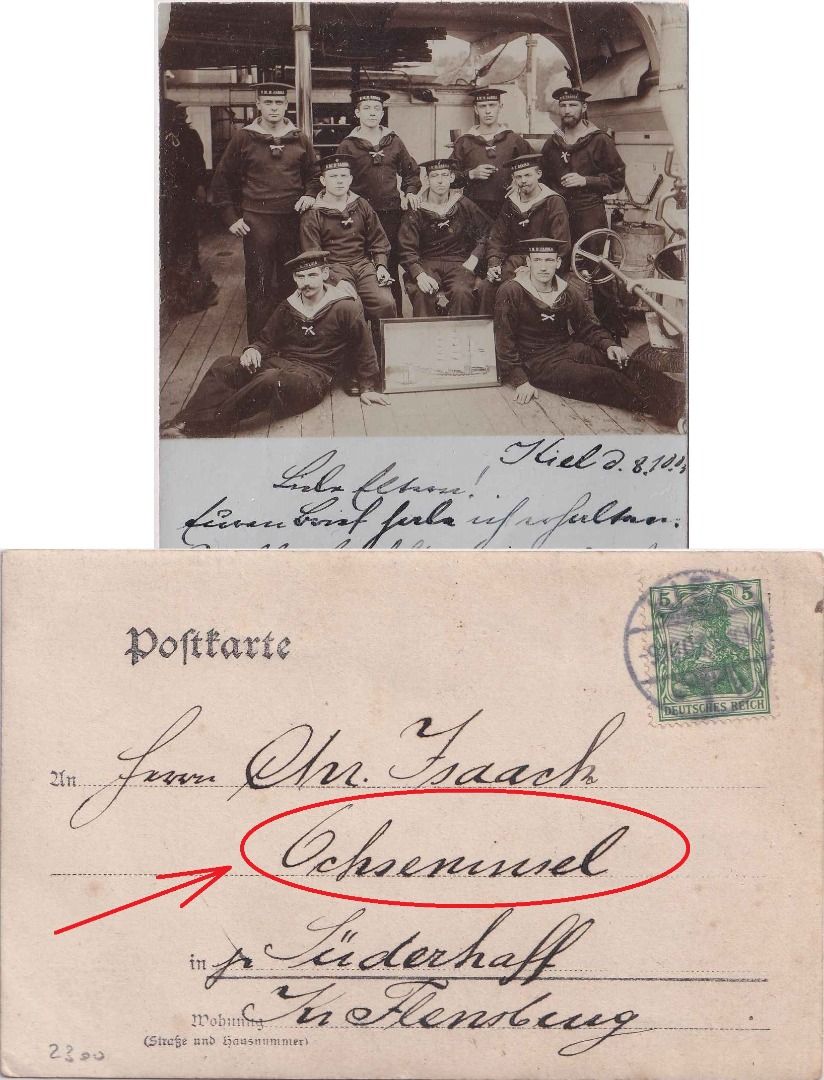 Kiel d. 8.10.
Liebe Eltern!
Euren Brief habe ich erhalten.
Postkarte
5 5
DEUTSCHES REICH
An Herrn Chr. Isaack
Ochseninsel
in pr Süderhaff
Wohnung Kr Flensburg
(Straße und Hausnummer)
2300